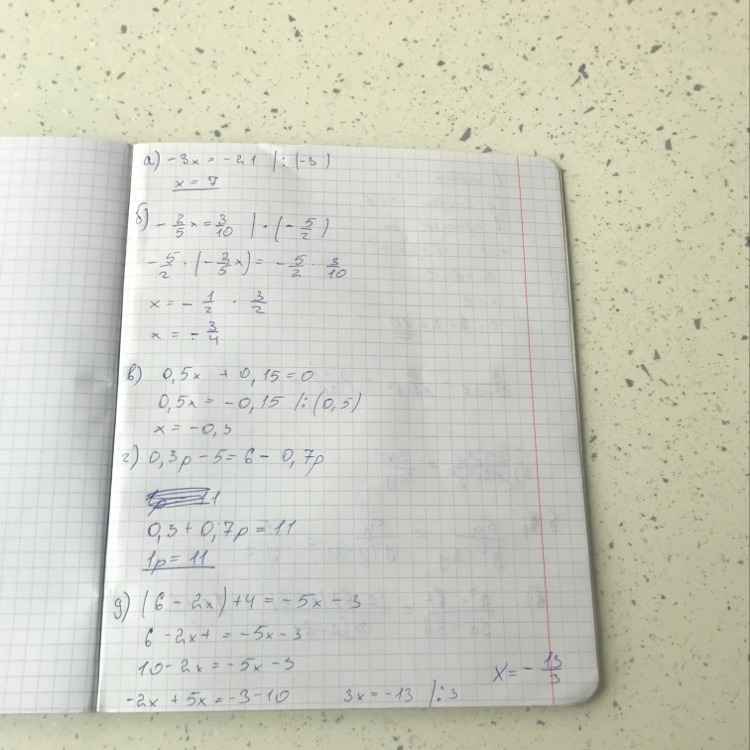 а) -3x = -21 | : (-3)
x = 7
б) - 2/5 x = 3/10 | · (- 5/2)
- 5/2 · (- 2/5 x) = - 5/2 · 3/10
x = - 1/2 · 3/2
x = - 3/4
в) 0,5x + 0,15 = 0
0,5x = -0,15 | : (0,5)
x = -0,3
г) 0,3p - 5 = 6 - 0,7p
0,3 + 0,7p = 11
1p = 11
д) (6 - 2x) + 4 = -5x - 3
6 - 2x + = -5x - 3
10 - 2x = -5x - 3
-2x + 5x = -3 - 10 3x = -13 | : 3 x = - 13/3